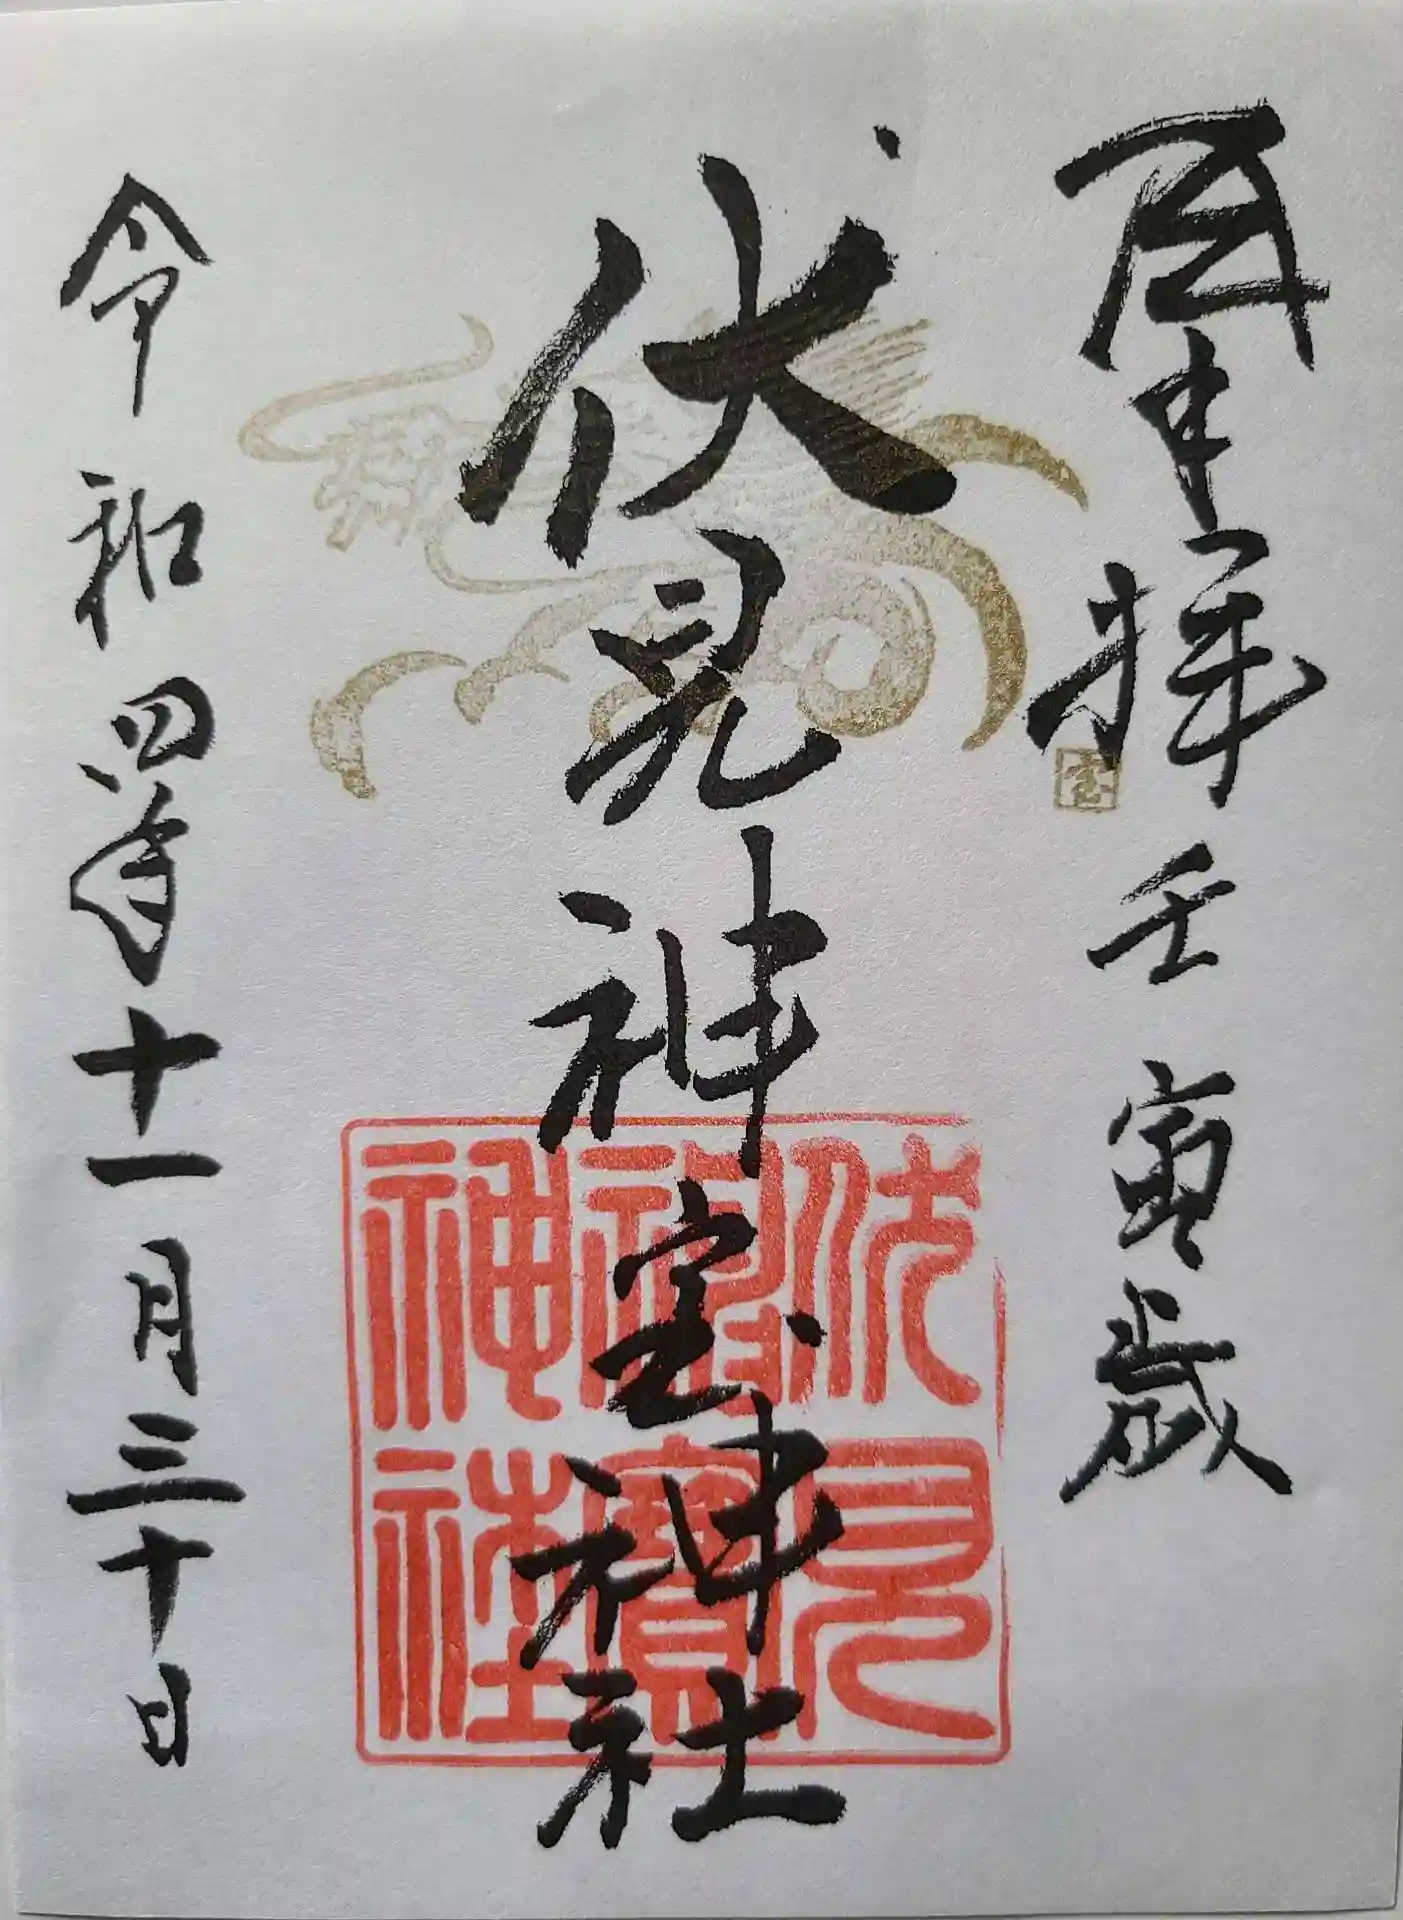 奉拝 壬寅歳
宝
伏見神宝神社
伏見
神寳
神社
令和四年十一月三十日